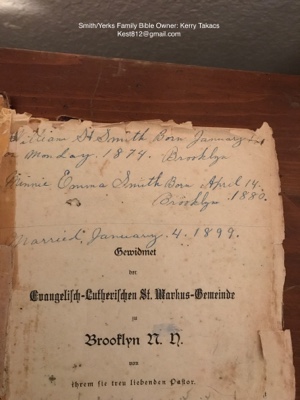 Smith/Yerks Family Bible Owner: Kerry Takacs
Kest812@gmail.com
William St Smith Born January
on Monday. 1874. Brooklyn
Minnie Emma Smith Born April 14.
Brooklyn 1880.
Married January. 4. 1899.
Gewidmet
der
Evangelisch-Lutherischen St. Markus-Gemeinde
zu
Brooklyn N. Y.
von
ihrem sie treu liebenden Pastor.